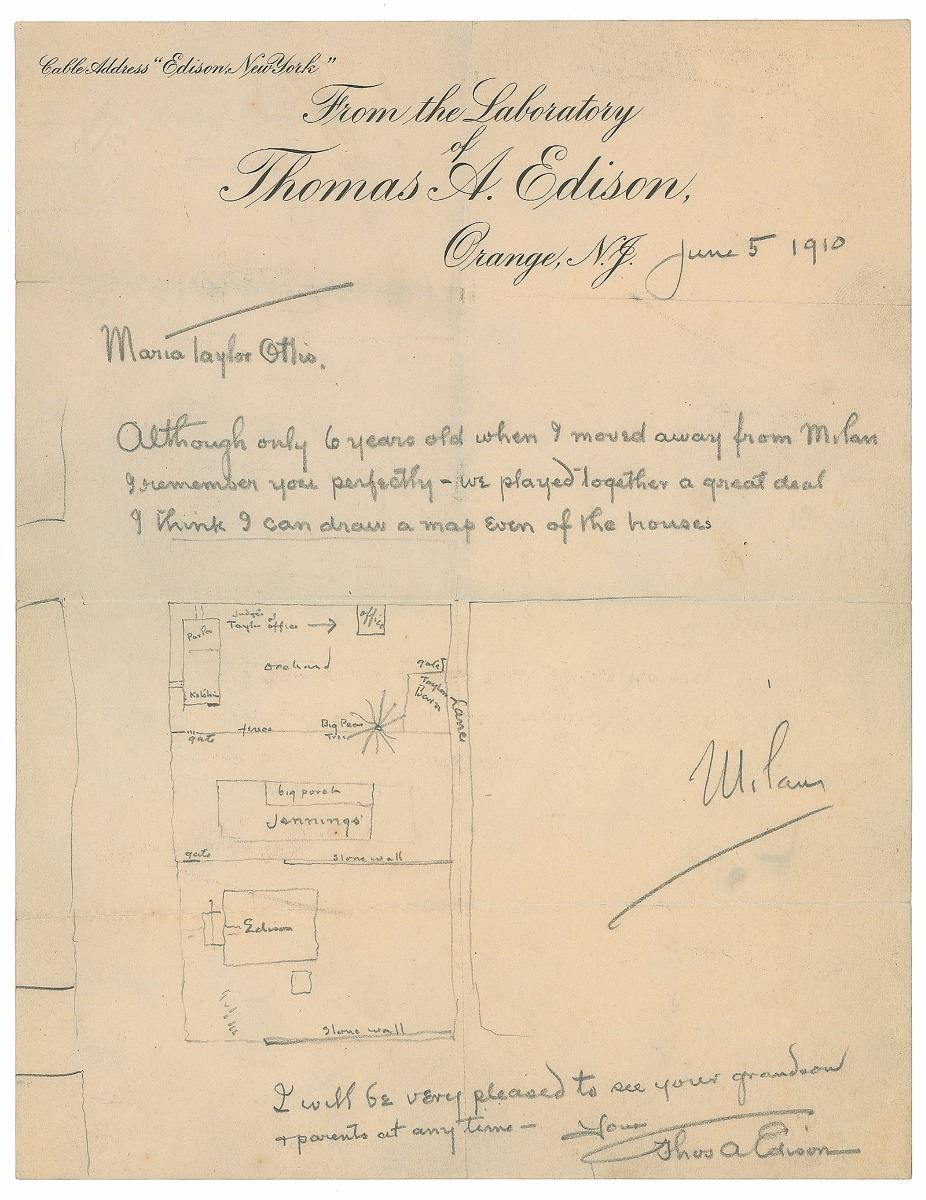 Cable Address "Edison, New York"
From the Laboratory
of
Thomas A. Edison,
Orange, N.J. June 5 1910
Maria Taylor Ottis.
Although only 6 years old when I moved away from Milan
I remember you perfectly - we played together a great deal
I think I can draw a map even of the houses
Judge's
Taylor office →
office
Parlor
orchard
gate
Taylor
Barn
Kitchin
Lane
Big Pear
Tree
gate
fence
big porch
Jennings'
gate
stone wall
Edison
stone wall
Milan
I will be very pleased to see your grandson
+ parents at any time - Yours
Thos A Edison